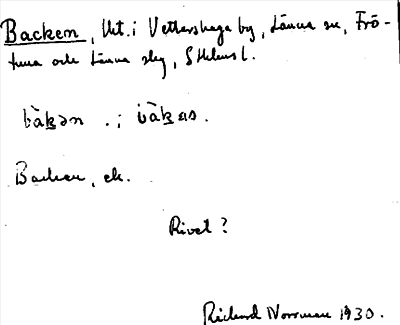 Backen, Utt. i Vettershaga by, Länna sn, Frö-
tuna och Länna slg, Sthlms l.
bàk̠ən . i bàk̠as.
Backen, ek.
Rivet?
Richard Norrman 1930.